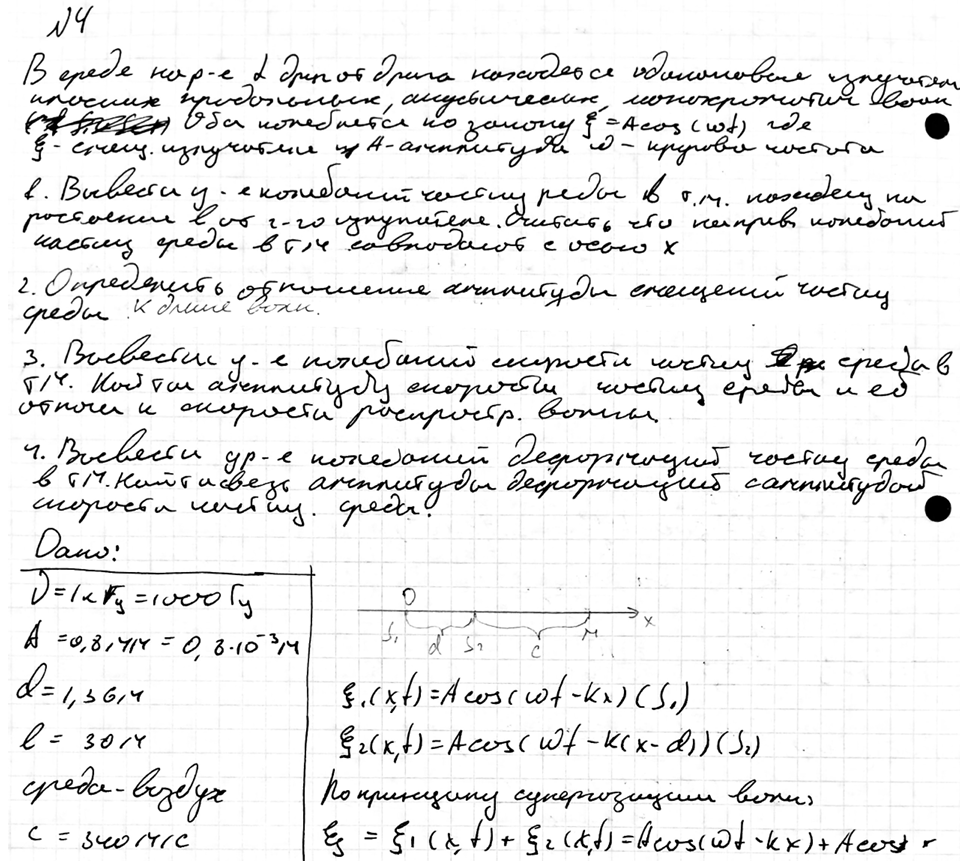 №4
В среде на р-е d друг от друга находятся одинаковые излучатели
плоских продольных, акустических, монохроматич волн
Оба колеблются по закону ξ = A cos(ωt) где
ξ - смещ. излучателя A - амплитуда ω - круговая частота
1. Вывести у-е колебаний частиц среды в т.М. находящ на
растоении l от 2-го излучателя. Считать что направ колебаний
частиц среды в т.М совпадают с осью x
2. Определить отношение амплитуды смещений частиц
среды к длине волн.
3. Вывести у-е колебаний скорости частиц среды в
т.М. Найти амплитуду скорости частиц среды и её
отнош к скорости распростр. волны.
4. Вывести ур-е колебаний деформаций частиц среды
в т.М. Найти связь амплитуды деформаций с амплитудой
скорости частиц. среды.
Дано:
ν = 1кГц = 1000 Гц
A = 0,8мм = 0,8·10⁻³м
d = 1,36м
l = 30м
среда - воздух
c = 340м/с
O
S₁ d S₂ c М x
ξ₁(x,t) = A cos(ωt - kx) (S₁)
ξ₂(x,t) = A cos(ωt - k(x - d)) (S₂)
По принципу суперпозиции волн:
ξ = ξ₁(x,t) + ξ₂(x,t) = A cos(ωt - kx) + A cos